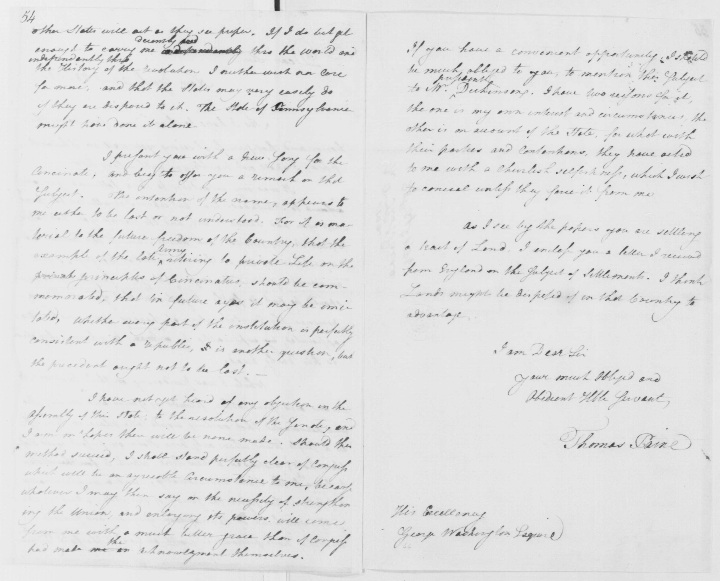 54
other States will act as they see proper. If I do but get
enough to carry me decently and independently thro' the world and
independently thro
the History of the Revolution I neither wish nor care
for more; and that the States may very easily do
if they are disposed to it. The State of Pennsylvania
might have done it alone
I present you with a new Song for the
Cincinnati, and beg to offer you a remark on that
Subject. The intention of the name, appears to
me either to be lost or not understood. For it is ma-
terial to the future freedom of the Country, that the
example of the late army retiring to private Life, on the
principles of Cincinatus, should be com-
memorated, that in future ages it may be imi-
tated. Whether every part of the institution is perfectly
consistent with a republic, is another question, but
the precedent ought not to be lost. —
I have not yet heard of any objection in the
Assembly of this State, to the resolution of the Senate, and
I am in hopes there will be none made. Should the
method succeed, I shall stand perfectly clear of Congress
which will be an agreeable circumstance to me, because
whatever I may then say on the necessity of strengthen
ing the Union, and enlarging its powers, will come
from me with a much better grace than if Congress
had made the acknowlegment themselves.
If you have a convenient opportunity, I should
be much obliged to you, to mention this Subject
to Mr. President Dickinson. I have two reasons for it,
the one is my own interest and circumstances, the
other is on account of the State, for what with
their parties and contentions, they have acted
to me with a churlish selfishness, which I wish
to conceal unless they force it from me
As I see by the papers you are settling
a tract of Land. I enclose you a letter I received
from England on the Subject of Settlement. I think
Lands might be disposed of in that Country to
advantage.
I am Dear Sir
Your much Obliged and
Obedient Hble Servant,
Thomas Paine
His Excellency
George Washington Esquire